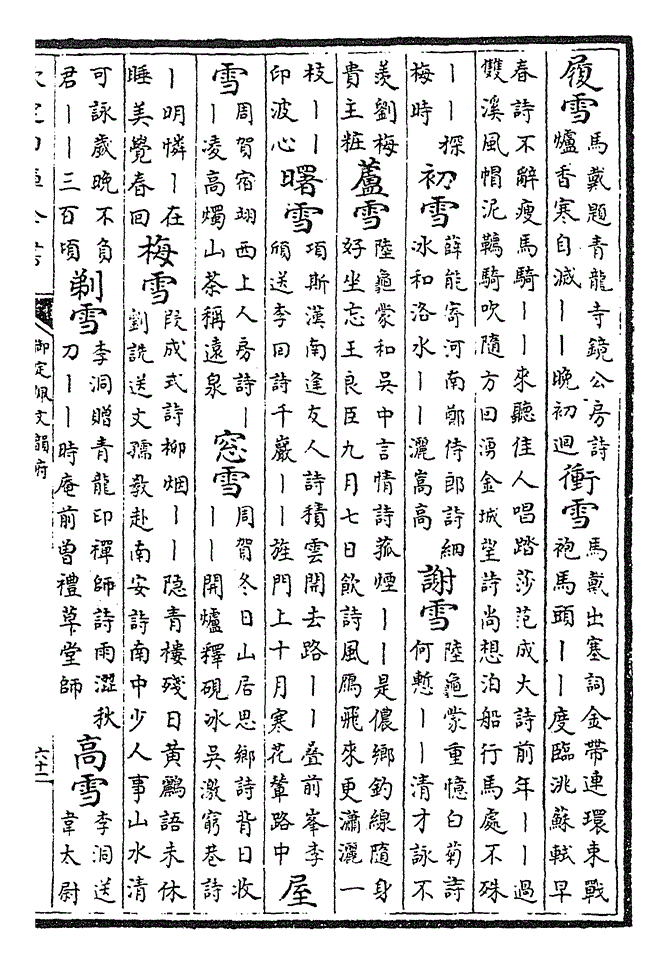 履雪 馬戴題青龍寺鏡公房詩爐香寒自滅丨丨晚初迴 衝雪 馬戴出塞詞金帶連環束戰袍馬頭丨丨度臨洮蘇軾早
春詩不解瘦馬騎丨丨來聽佳人唱踏莎范成大詩前年丨丨過雙溪風帽泥韉騎吹隨方回湧金城望詩尚想泊船行馬處不殊
丨丨探梅時 初雪 薛能寄河南鄭侍郎詩細冰和洛水丨丨灑嵩高 謝雪 陸龜蒙重憶白菊詩何慙丨丨清才詠不
羨劉梅貴主粧 蘆雪 陸龜蒙和吳中言情詩菰煙丨丨是儂鄉釣線隨身好坐忘王良臣九月七日飲詩風鴈飛來更瀟灑一
枝丨丨印波心 曙雪 項斯漢南逢友人詩積雲開去路丨丨疊前峯李頻送李回詩千巖丨丨旌門上十月寒花輦路中 屋
雪 周賀宿翊西上人房詩丨丨凌高燭山茶稱遠泉 窓雪 周賀冬日山居思鄉詩背日收丨丨開爐釋硯冰吳激窮巷詩
丨明憐丨在睡美覺春回 梅雪 段成式詩柳烟丨丨隐青樓殘日黃鸝語未休劉詵送文孺教赴南安詩南中少人事山水清
可詠歲晚不負君丨丨三百頃 剃雪 李洞贈青龍印禪師詩雨澀秋刀丨丨時庵前曾禮草堂師 高雪 李洞送韋太尉
欽定四庫全書 御定佩文韻府 六十二